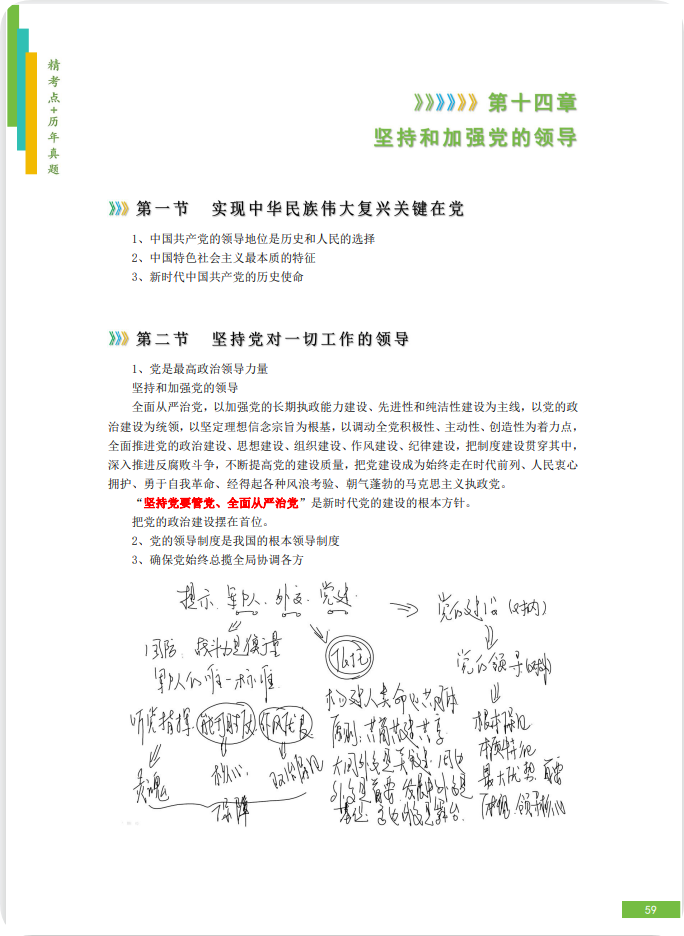 精考点+历年真题
第十四章
坚持和加强党的领导
第一节 实现中华民族伟大复兴关键在党
1、中国共产党的领导地位是历史和人民的选择
2、中国特色社会主义最本质的特征
3、新时代中国共产党的历史使命
第二节 坚持党对一切工作的领导
1、党是最高政治领导力量
坚持和加强党的领导
全面从严治党，以加强党的长期执政能力建设、先进性和纯洁性建设为主线，以党的政
治建设为统领，以坚定理想信念宗旨为根基，以调动全党积极性、主动性、创造性为着力点，
全面推进党的政治建设、思想建设、组织建设、作风建设、纪律建设，把制度建设贯穿其中，
深入推进反腐败斗争，不断提高党的建设质量，把党建设成为始终走在时代前列、人民衷心
拥护、勇于自我革命、经得起各种风浪考验、朝气蓬勃的马克思主义执政党。
“坚持党要管党、全面从严治党”是新时代党的建设的根本方针。
把党的政治建设摆在首位。
2、党的领导制度是我国的根本领导制度
3、确保党始终总揽全局协调各方
提示 军队人. 外交. 党建
党的建设(对内)
国防 战斗力是衡量
军队人的唯一标准
党的领导
构建人类命运共同体
听党指挥 能打胜仗 作风优良
原则:共商共建共享
根本保证
本质特征
大国外交是关键 周边
最大优势 首要
灵魂 核心
外交是首要 发展中外交是
基础 多边外交是舞台.
本质 领导核心
保障
59